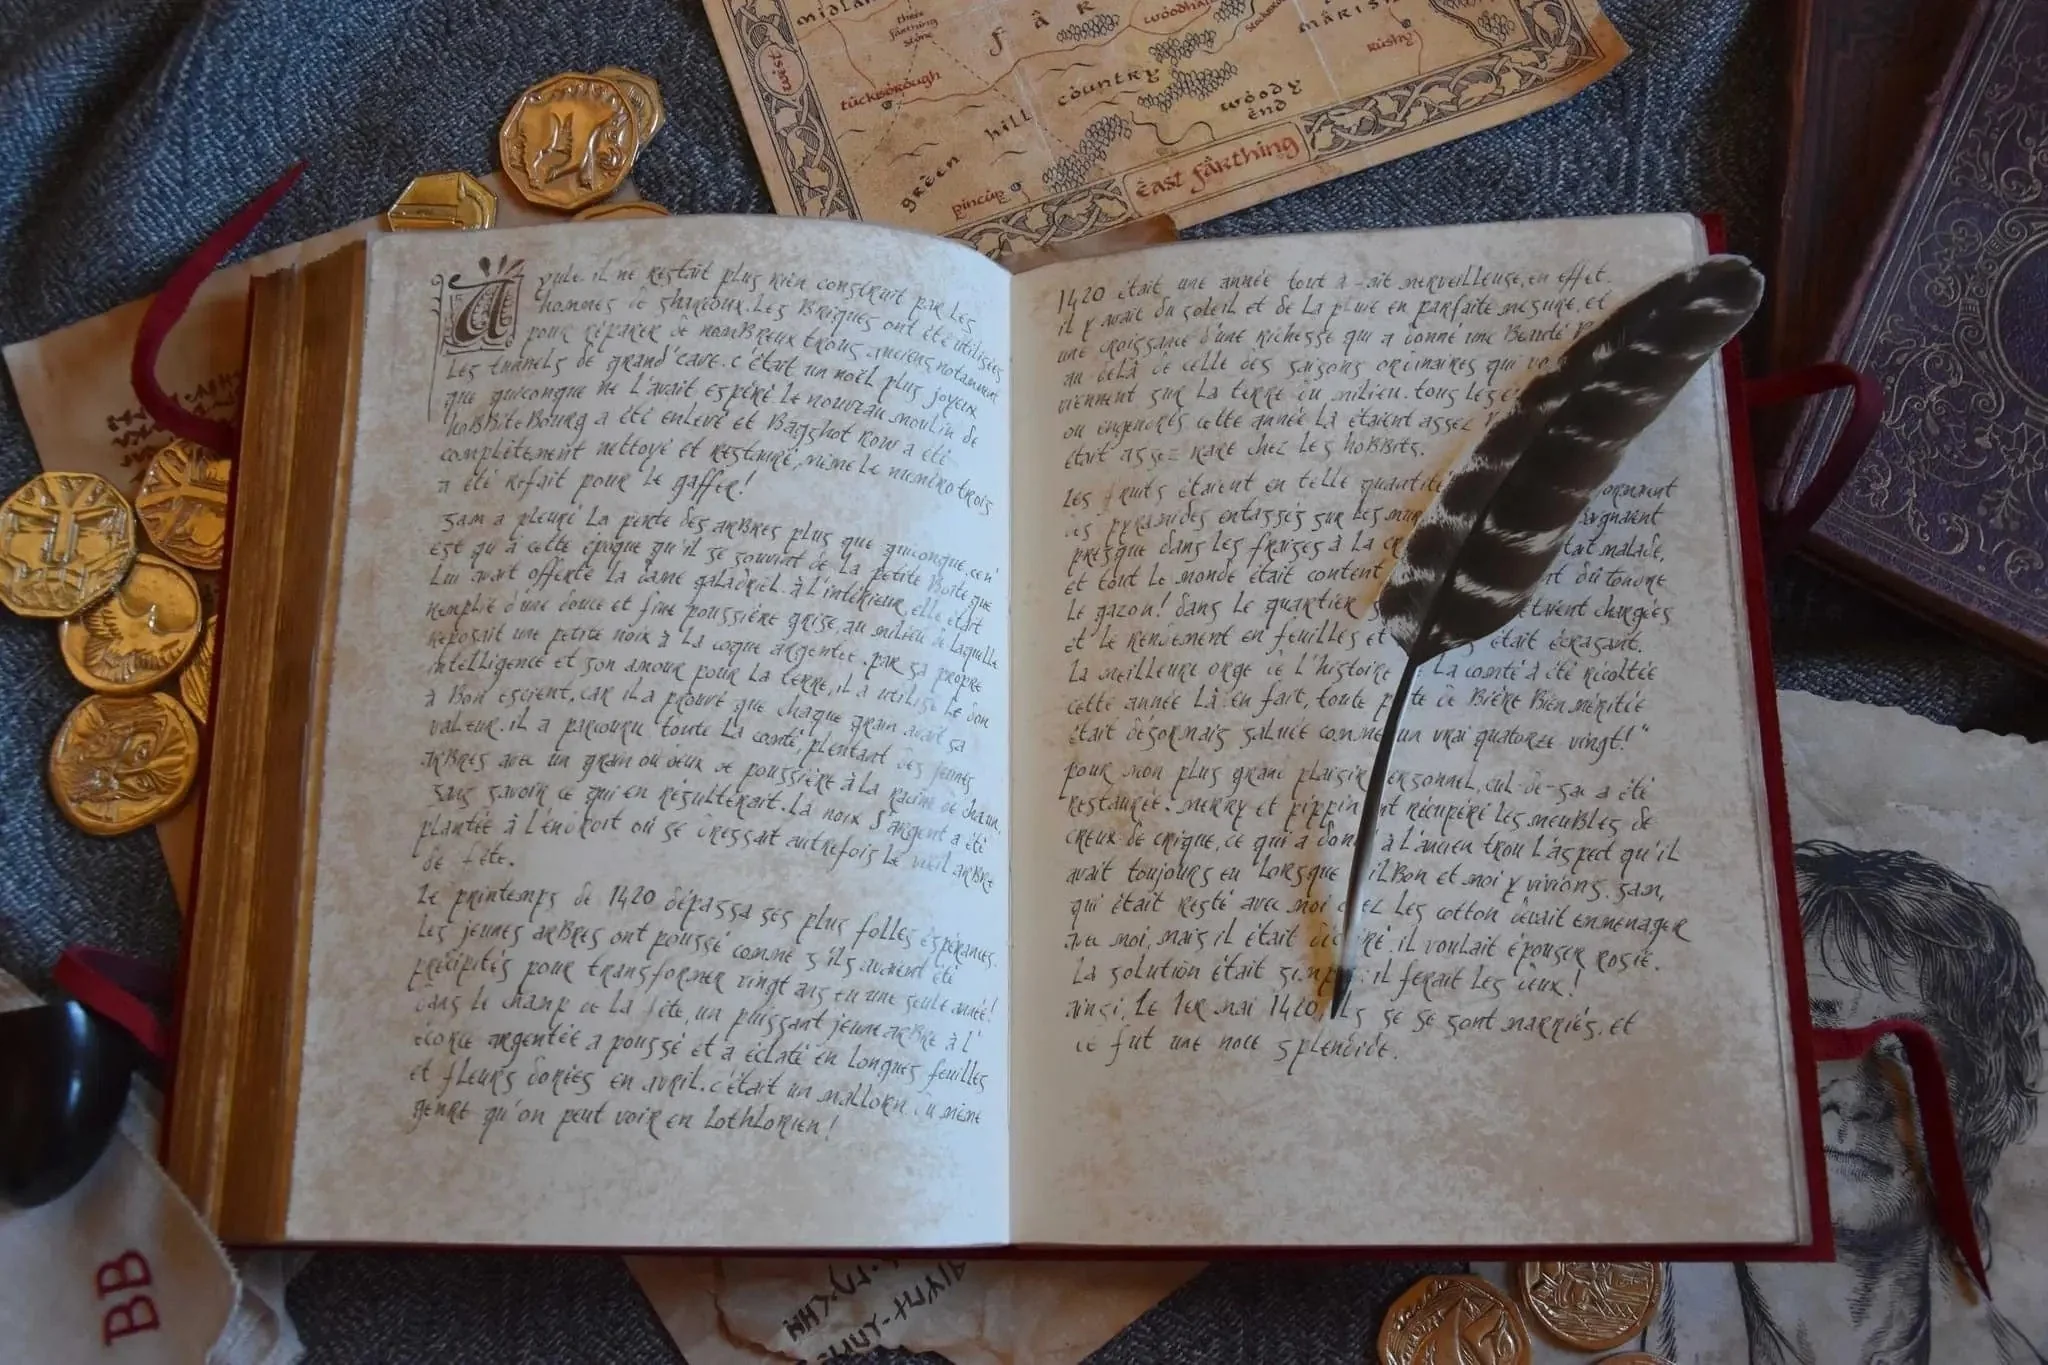 midlan
three
farthing
stone
far
woodhall
marish
rushy
west
tuckborough
country
woody
end
green hill
pincup
east farthing
A yule il ne restait plus rien construit par les
hommes de sharcoux. Les Briques ont été utilisées
pour réparer de nombreux trous anciens, notamment
Les tunnels de grand'cave. c'était un noël plus joyeux
que quiconque ne l'avait espéré. Le nouveau moulin de
hobbitebourg a été enlevé et Bagshot row a été
complètement nettoyé et restauré, même le numéro trois
a été refait pour le gaffer!
sam a pleuré la perte des arbres plus que quiconque. ce n'
est qu'à cette époque qu'il se souvint de la petite Boîte que
Lui avait offerte la dame galadriel. à l'intérieur, elle était
remplie d'une douce et fine poussière grise, au milieu de laquelle
reposait une petite noix à la coque argentée. par sa propre
intelligence et son amour pour la terre, il a utilisé le don
à bon escient, car il a prouvé que chaque grain avait sa
valeur. il a parcouru toute la comté, plantant des jeunes
arbres avec un grain ou deux de poussière à la racine de chacun,
sans savoir ce qui en résulterait. La noix d'argent a été
plantée à l'endroit où se dressait autrefois le vieil arbre
de fête.
Le printemps de 1420 dépassa ses plus folles espérances.
Les jeunes arbres ont poussé comme s'ils avaient été
précipités pour transformer vingt ans en une seule année!
dans le champ de la fête, un puissant jeune arbre à l'
écorce argentée a poussé et a éclaté en longues feuilles
et fleurs dorées en avril. c'était un mallorn du même
genre qu'on peut voir en Lothlorien!
1420 était une année tout à fait merveilleuse, en effet.
il y avait du soleil et de la pluie en parfaite mesure, et
une croissance d'une richesse qui a donné une Beauté
au-delà de celle des saisons ordinaires qui
viennent sur la terre du milieu. tous les
ou engendrés cette année là étaient assez
était assez rare chez les hobbits.
Les fruits étaient en telle quantité
des pyramides entassés sur les
presque dans les fraises à la était malade,
et tout le monde était content du tondre
le gazon! dans le quartier étaient chargées
et le rendement en feuilles et était écrasant.
La meilleure orge de l'histoire La comté a été récoltée
cette année là. en fait, toute de Bière Bien méritée
était désormais saluée comme un vrai quatorze vingt!"
pour mon plus grand plaisir personnel, cul-de-sac a été
restaurée. merry et pippin ont récupéré les meubles de
creux de crique, ce qui a donné à l'ancien trou l'aspect qu'il
avait toujours eu lorsque Bilbon et moi y vivions. sam,
qui était resté avec moi chez les cotton devait emménager
avec moi, mais il était déchiré. il voulait épouser rosie.
La solution était simple: il ferait les deux!
ainsi, le 1er mai 1420, ils se se sont marriés, et
ce fut une noce splendide.
BB